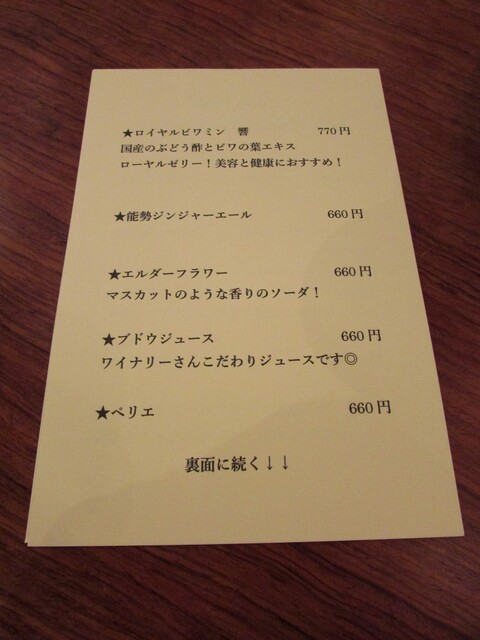 ★ロイヤルビワミン 響 770円
国産のぶどう酢とビワの葉エキス
ローヤルゼリー！美容と健康におすすめ！
★能勢ジンジャーエール 660円
★エルダーフラワー 660円
マスカットのような香りのソーダ！
★ブドウジュース 660円
ワイナリーさんこだわりジュースです◎
★ペリエ 660円
裏面に続く↓↓